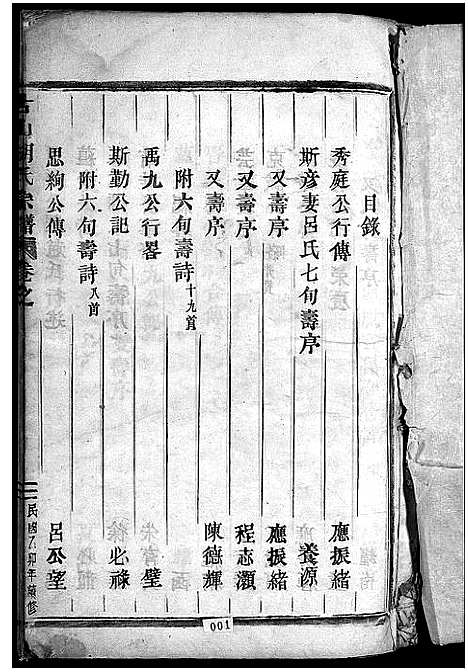 目錄
秀庭公行傳 應振緒
斯彥妻呂氏七旬壽序 養源
又壽序 應振緒
又壽序 程志灝
又壽序 陳德輝
附六旬壽詩十九首
禹九公行畧 朱壁
斯勤公記 徐必祿
附六旬壽詩八首
思絢公傳 呂公望
胡氏宗譜 卷之
民國乙卯年領修
001